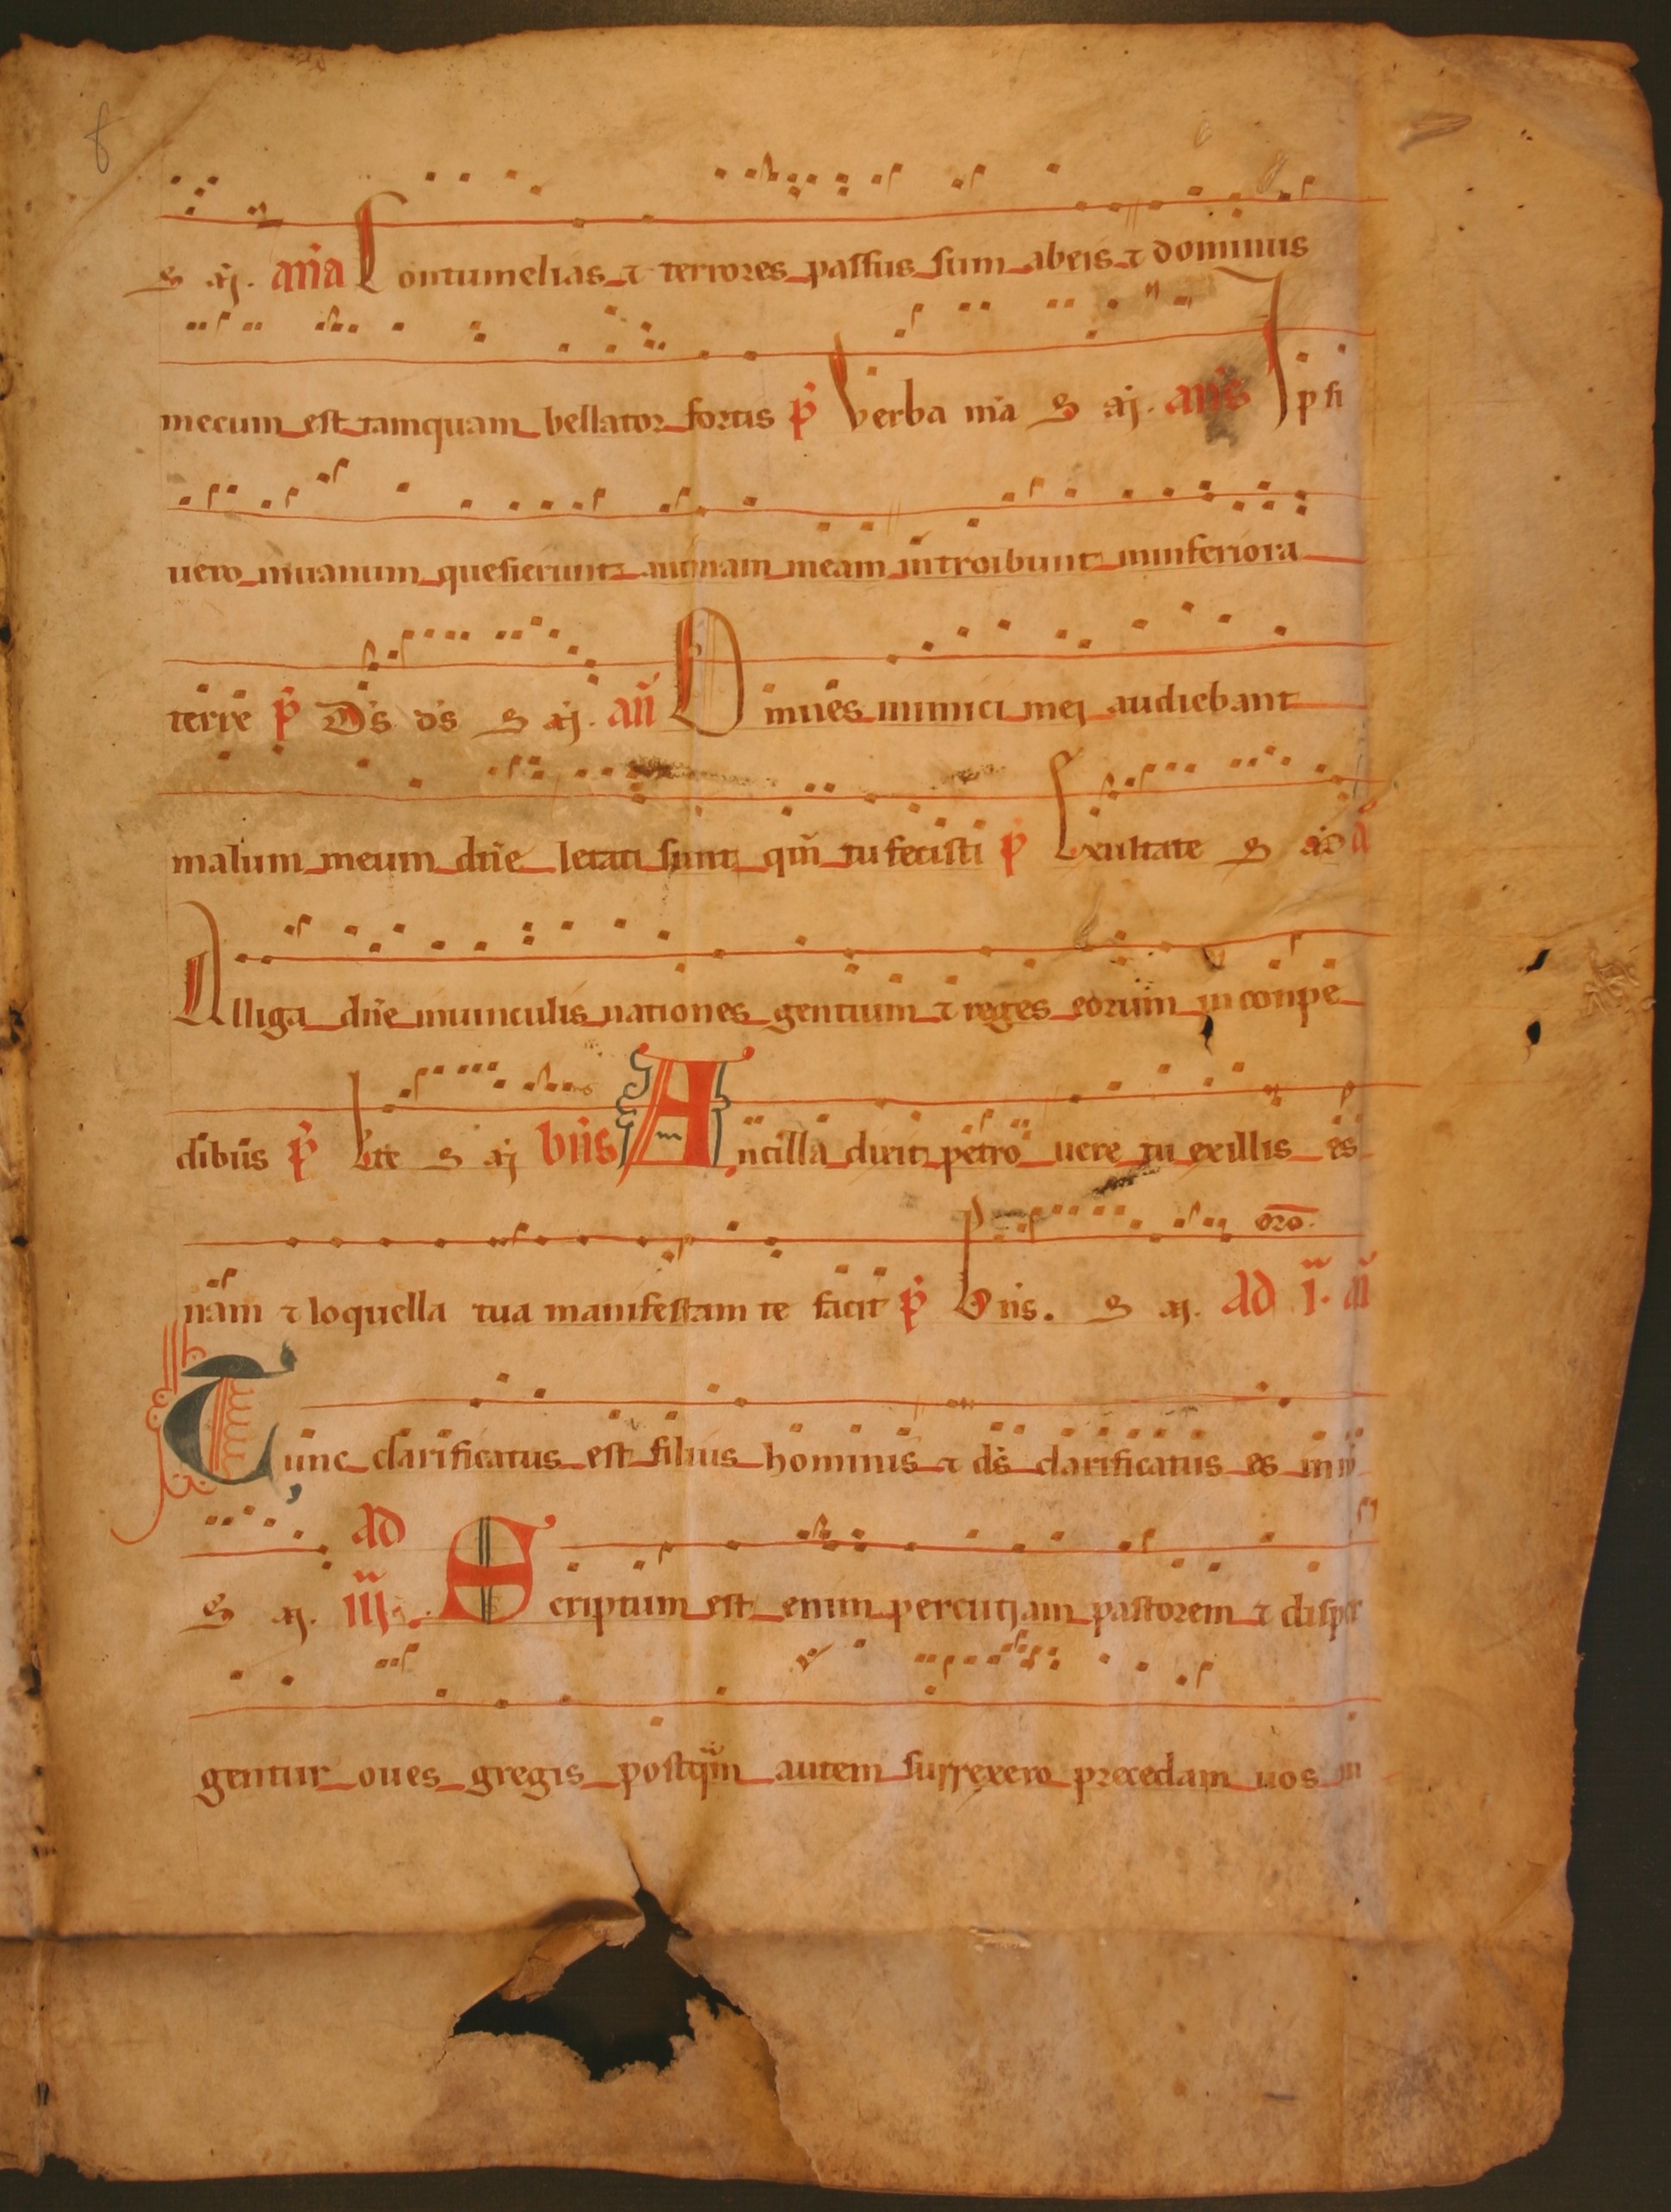 S A. aña Contumelias et terrores passus sum abeis et dominus
mecum est tamquam bellator fortis p̄ Verba mā S A. añs Ipsi
uero inuanum quesierunt animam meam introibunt ininferiora
terre p̄ D̄s d̄s S A. añ Omnes inimici mei audiebant
malum meum dn̄e letati sunt qm̄ tu fecisti p̄ Exultate S
Alliga dn̄e inuinculis nationes gentium et reges eorum in conpe
dibus p̄ S A. bn̄s Ancilla dixit petro uere tu exillis es
nam et loquella tua manifestam te facit p̄ S A. ad i. añ
Tunc clarificatus est filius hominis et d̄s clarificatus es in
S A. ad iii. Scriptum est enim percutiam pastorem et disper
gentur oues gregis postqm̄ autem surrexero precedam uos in